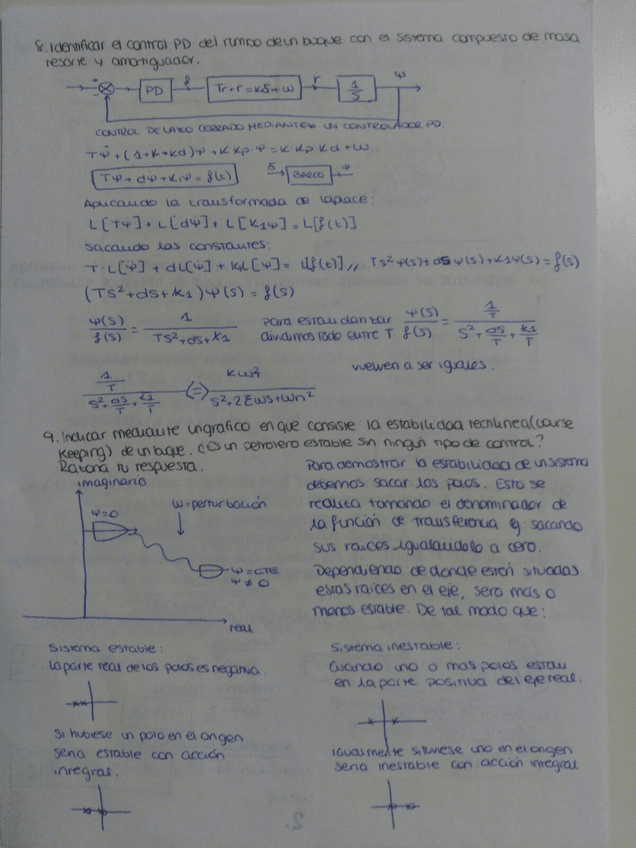 8. Identificar el control PD del rumbo de un buque con el sistema compuesto de masa
resorte y amortiguador.
PD
f
Tr+r=Kδ+w
r
1/S
ψ
CONTROL DE LAZO CERRADO MEDIANTE UN CONTROLADOR PD.
Tψ̈+(1+K*Kd)ψ̇+K Kp ψ = K Kp Kd + w
Tψ̈+dψ̇+K₁ψ = f(t)
δ BARCO ψ
Aplicando la transformada de laplace:
L[Tψ̈]+L[dψ̇]+L[K₁ψ]=L[f(t)]
sacando las constantes:
T·L[ψ̈]+dL[ψ̇]+K₁L[ψ]=L[f(t)]// Ts²ψ(s)+dsψ(s)+K₁ψ(s)=f(s)
(Ts²+ds+K₁)ψ(s)=f(s)
ψ(s)/f(s) = 1/(Ts²+ds+K₁) para estandarizar dividimos todo entre T ψ(s)/f(s) = (1/T)/(s²+ds/T+K1/T)
(1/T)/(s²+ds/T+K1/T) (=) Kwn²/(s²+2ξwns+wn²) vuelven a ser iguales.
9. Indicar mediante un gráfico en que consiste la estabilidad rectilínea (course
keeping) de un buque. ¿Es un petrolero estable sin ningún tipo de control?
Razona tu respuesta.
imaginario
ψ=0
w=perturbación
ψ=CTE
ψ≠0
real
Para demostrar la estabilidad de un sistema
debemos sacar los polos. Esto se
realiza tomando el denominador de
la función de transferencia y sacando
sus raices igualandolo a cero.
Dependiendo de donde estén situadas
estas raíces en el eje, sera mas o
menos estable. De tal modo que:
Sistema estable:
la parte real de los polos es negativa.
Si hubiese un polo en el origen
seria estable con acción
integral.
Sistema inestable:
Cuando uno o mas polos estan
en la parte positiva del eje real.
igualmente si tuviese uno en el origen
seria inestable con acción integral
2.